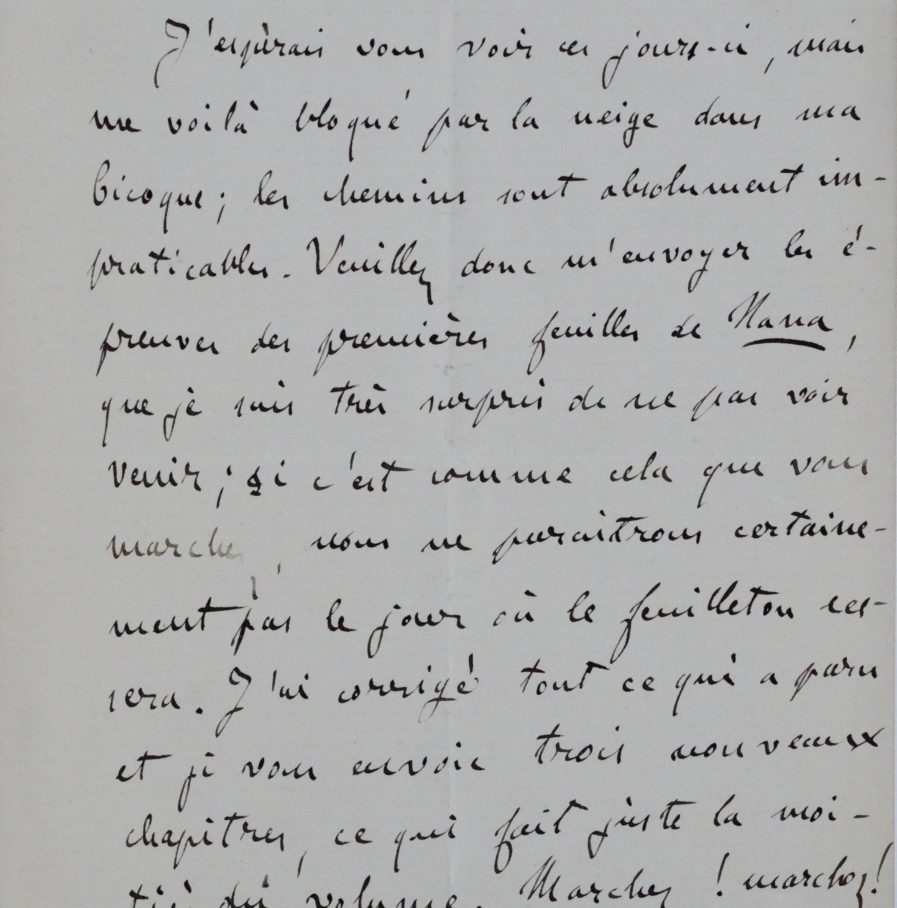 J'espérais vous voir ces jours-ci, mais
me voilà bloqué par la neige dans ma
bicoque ; les chemins sont absolument im-
praticables. Veuillez donc m'envoyer les é-
preuves des premières feuilles de Nana,
que je suis très surpris de ne pas voir
venir ; si c'est comme cela que vous
marchez, nous ne paraîtrons certaine-
ment pas le jour où le feuilleton ces-
sera. J'ai corrigé tout ce qui a paru
et je vous envoie trois nouveaux
chapitres, ce qui fait juste la moi-
tié du volume. Marchez ! marchez !